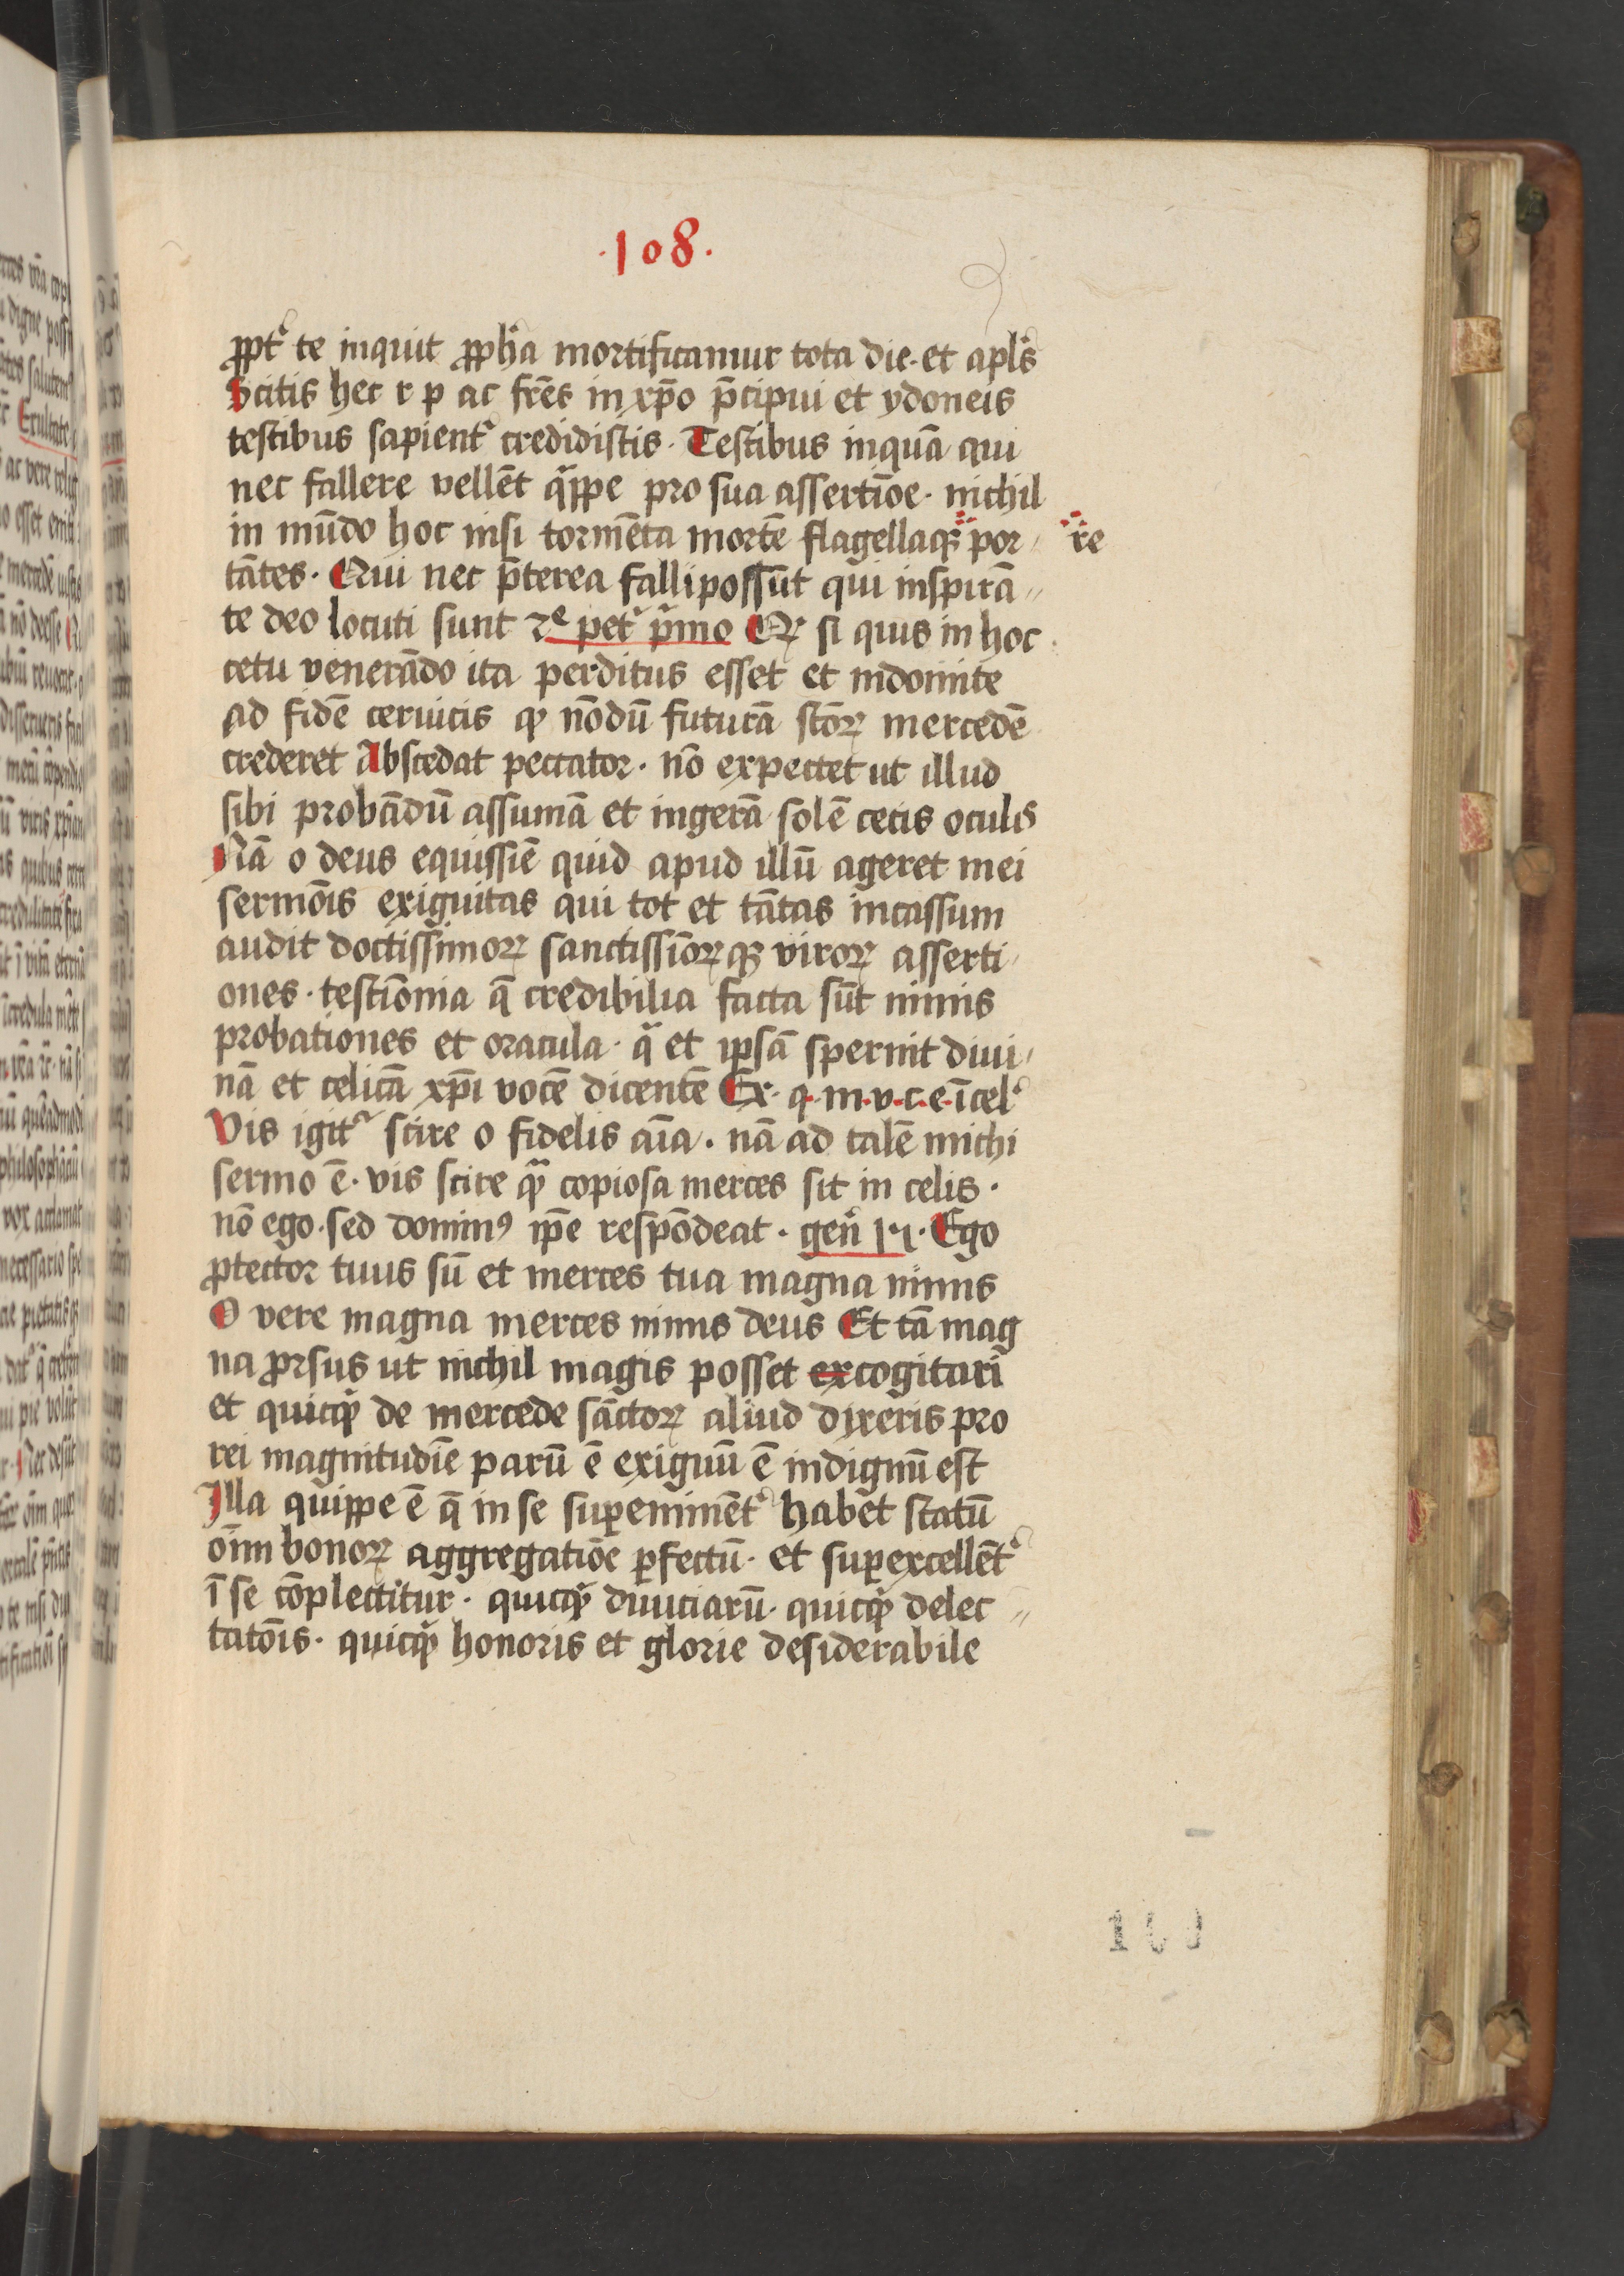 ·108·
ꝓpt᷑ te inquit ꝓpħa mortificamur tota die· et apl᷑s
Scitis hec r p ac fr̄es in xp̄o p̄cipui et ydoneis
testibus sapient᷑ credidistis· Testibus inquā qui
nec fallere vellēt q̈ppe pro sua assertiōe· nichil
in mūdo hoc nisi tormēta mortē flagellaqꝫ por re
tātes· Qui nec p̄terea falli possūt qui inspirā
te deo locuti sunt 2ᵉ pet᷑ pⁱmo Qꝫ si quis in hoc
cetu venerādo ita perditus esset et indomite
ad fidē ceruicis qꝫ nōdū futurā sc̄toꝝ mercedē
crederet Abscedat peccator· nō expectet ut illud
sibi probādū assumā et ingerā solē cecis oculis
Nā o deus equissīe quid apud illū ageret mei
sermōis exiguitas qui tot et tātas incassum
audit doctissimoꝝ sanctissīoꝝqꝫ viroꝝ asserti
ones· testīonia q̄ credibilia facta sūt nimis
probationes et oracula· qⁱ et ip̄sā spernit diui
nā et celicā xp̄i vocē dicentē Ex· q·m·v·c·e·ī cel᷑
Vis igit᷑ scire o fidelis aīa· nā ad talē michi
sermo ē· vis scire qᷓ copiosa merces sit in celis·
nō ego· sed dominꝰ ip̄e respōdeat· gen̄ 15· Ego
ꝓtector tuus sū et merces tua magna nimis
O vere magna merces nimis deus Et tā mag
na ꝓrsus ut nichil magis posset excogitari
et quicqᷓ de mercede sāctoꝝ aliud dixeris pro
rei magnitudīe parū ē exiguū ē indignū est
Illa quippe ē q̄ in se suꝑeminēt᷑ habet statū
oīm bonoꝝ aggregatiōe ꝑfectū· et suꝑexcellēt᷑
ī se cōplectitur· quicqᷓ diuiciarū· quicqᷓ delec
tatōis· quicqᷓ honoris et glorie desiderabile